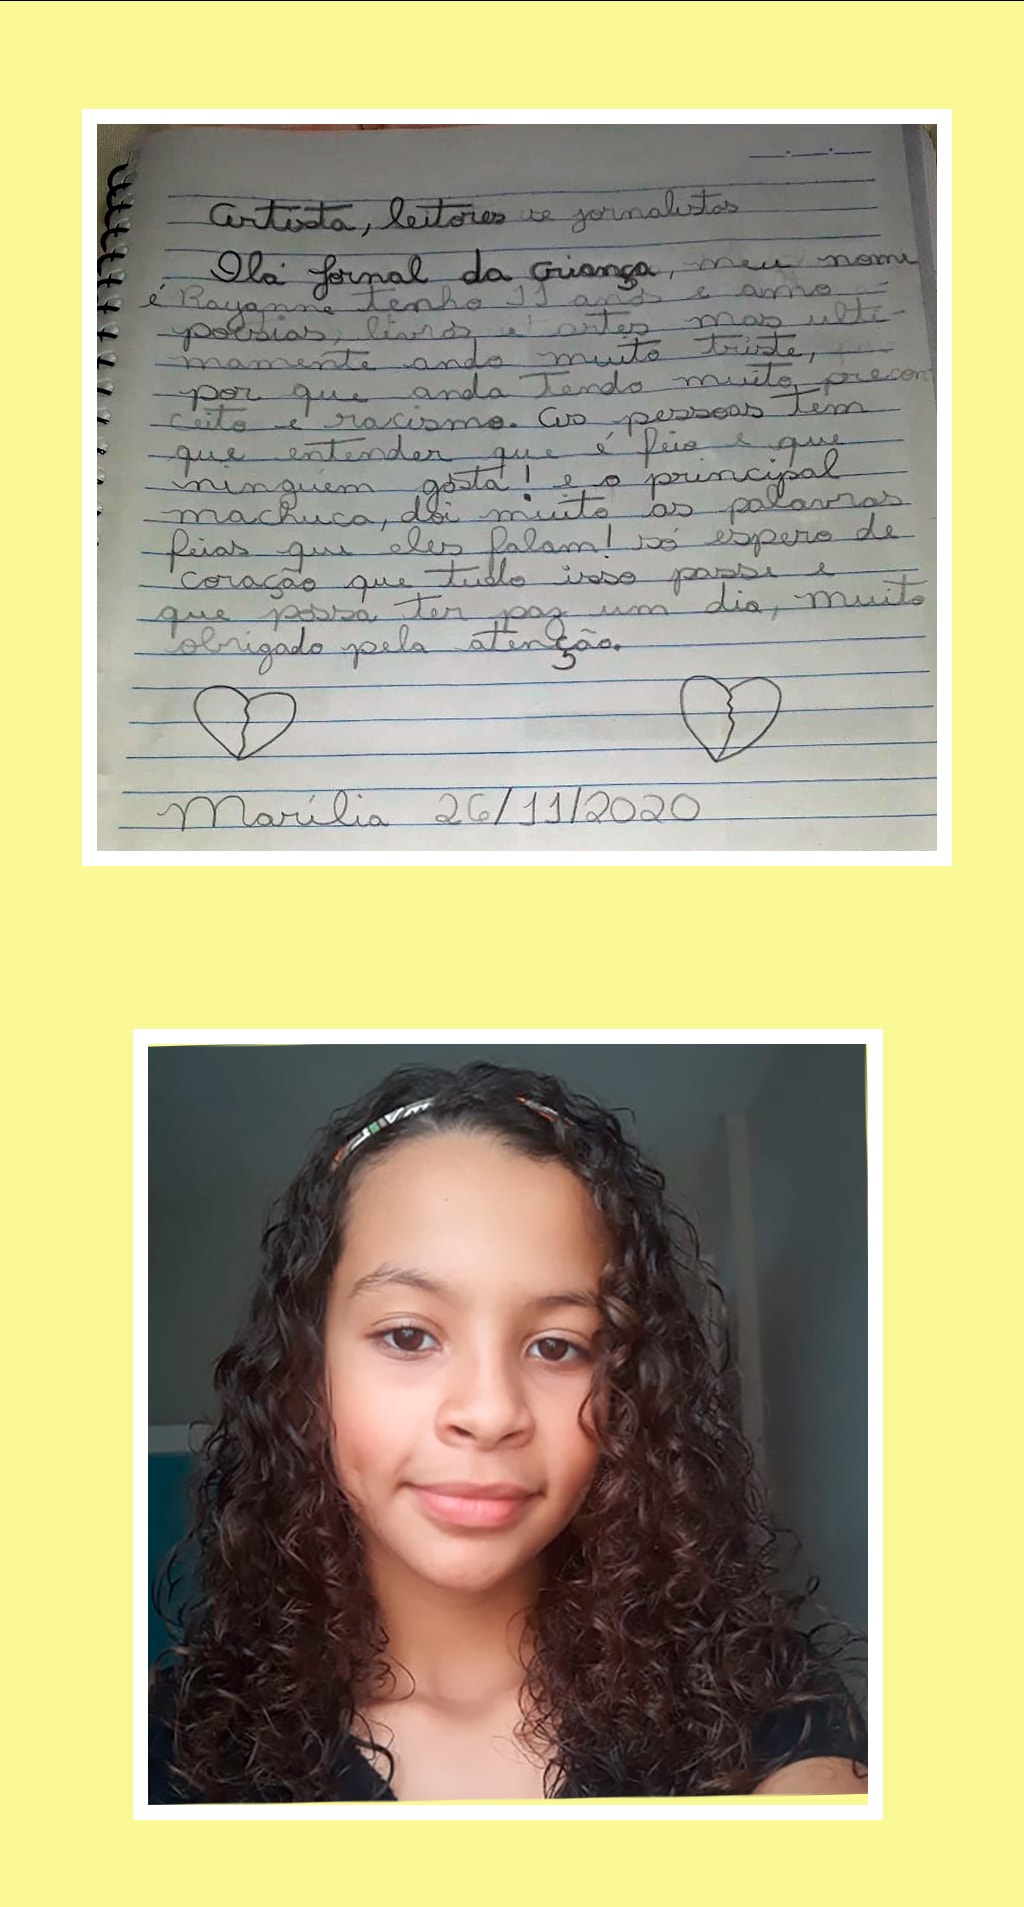 Artista, leitores e jornalistas
Olá Jornal da Criança, meu nome
é Rayanne tenho 11 anos e amo
poesias, livros e artes mas ulti-
mamente ando muito triste,
por que anda tendo muito precon
ceito e racismo. As pessoas tem
que entender que é feio e que
ninguém gosta! e o principal
machuca, dói muito as palavras
feias que eles falam! só espero de
coração que tudo isso passe e
que possa ter paz um dia, muito
obrigado pela atenção.
Marília 26/11/2020